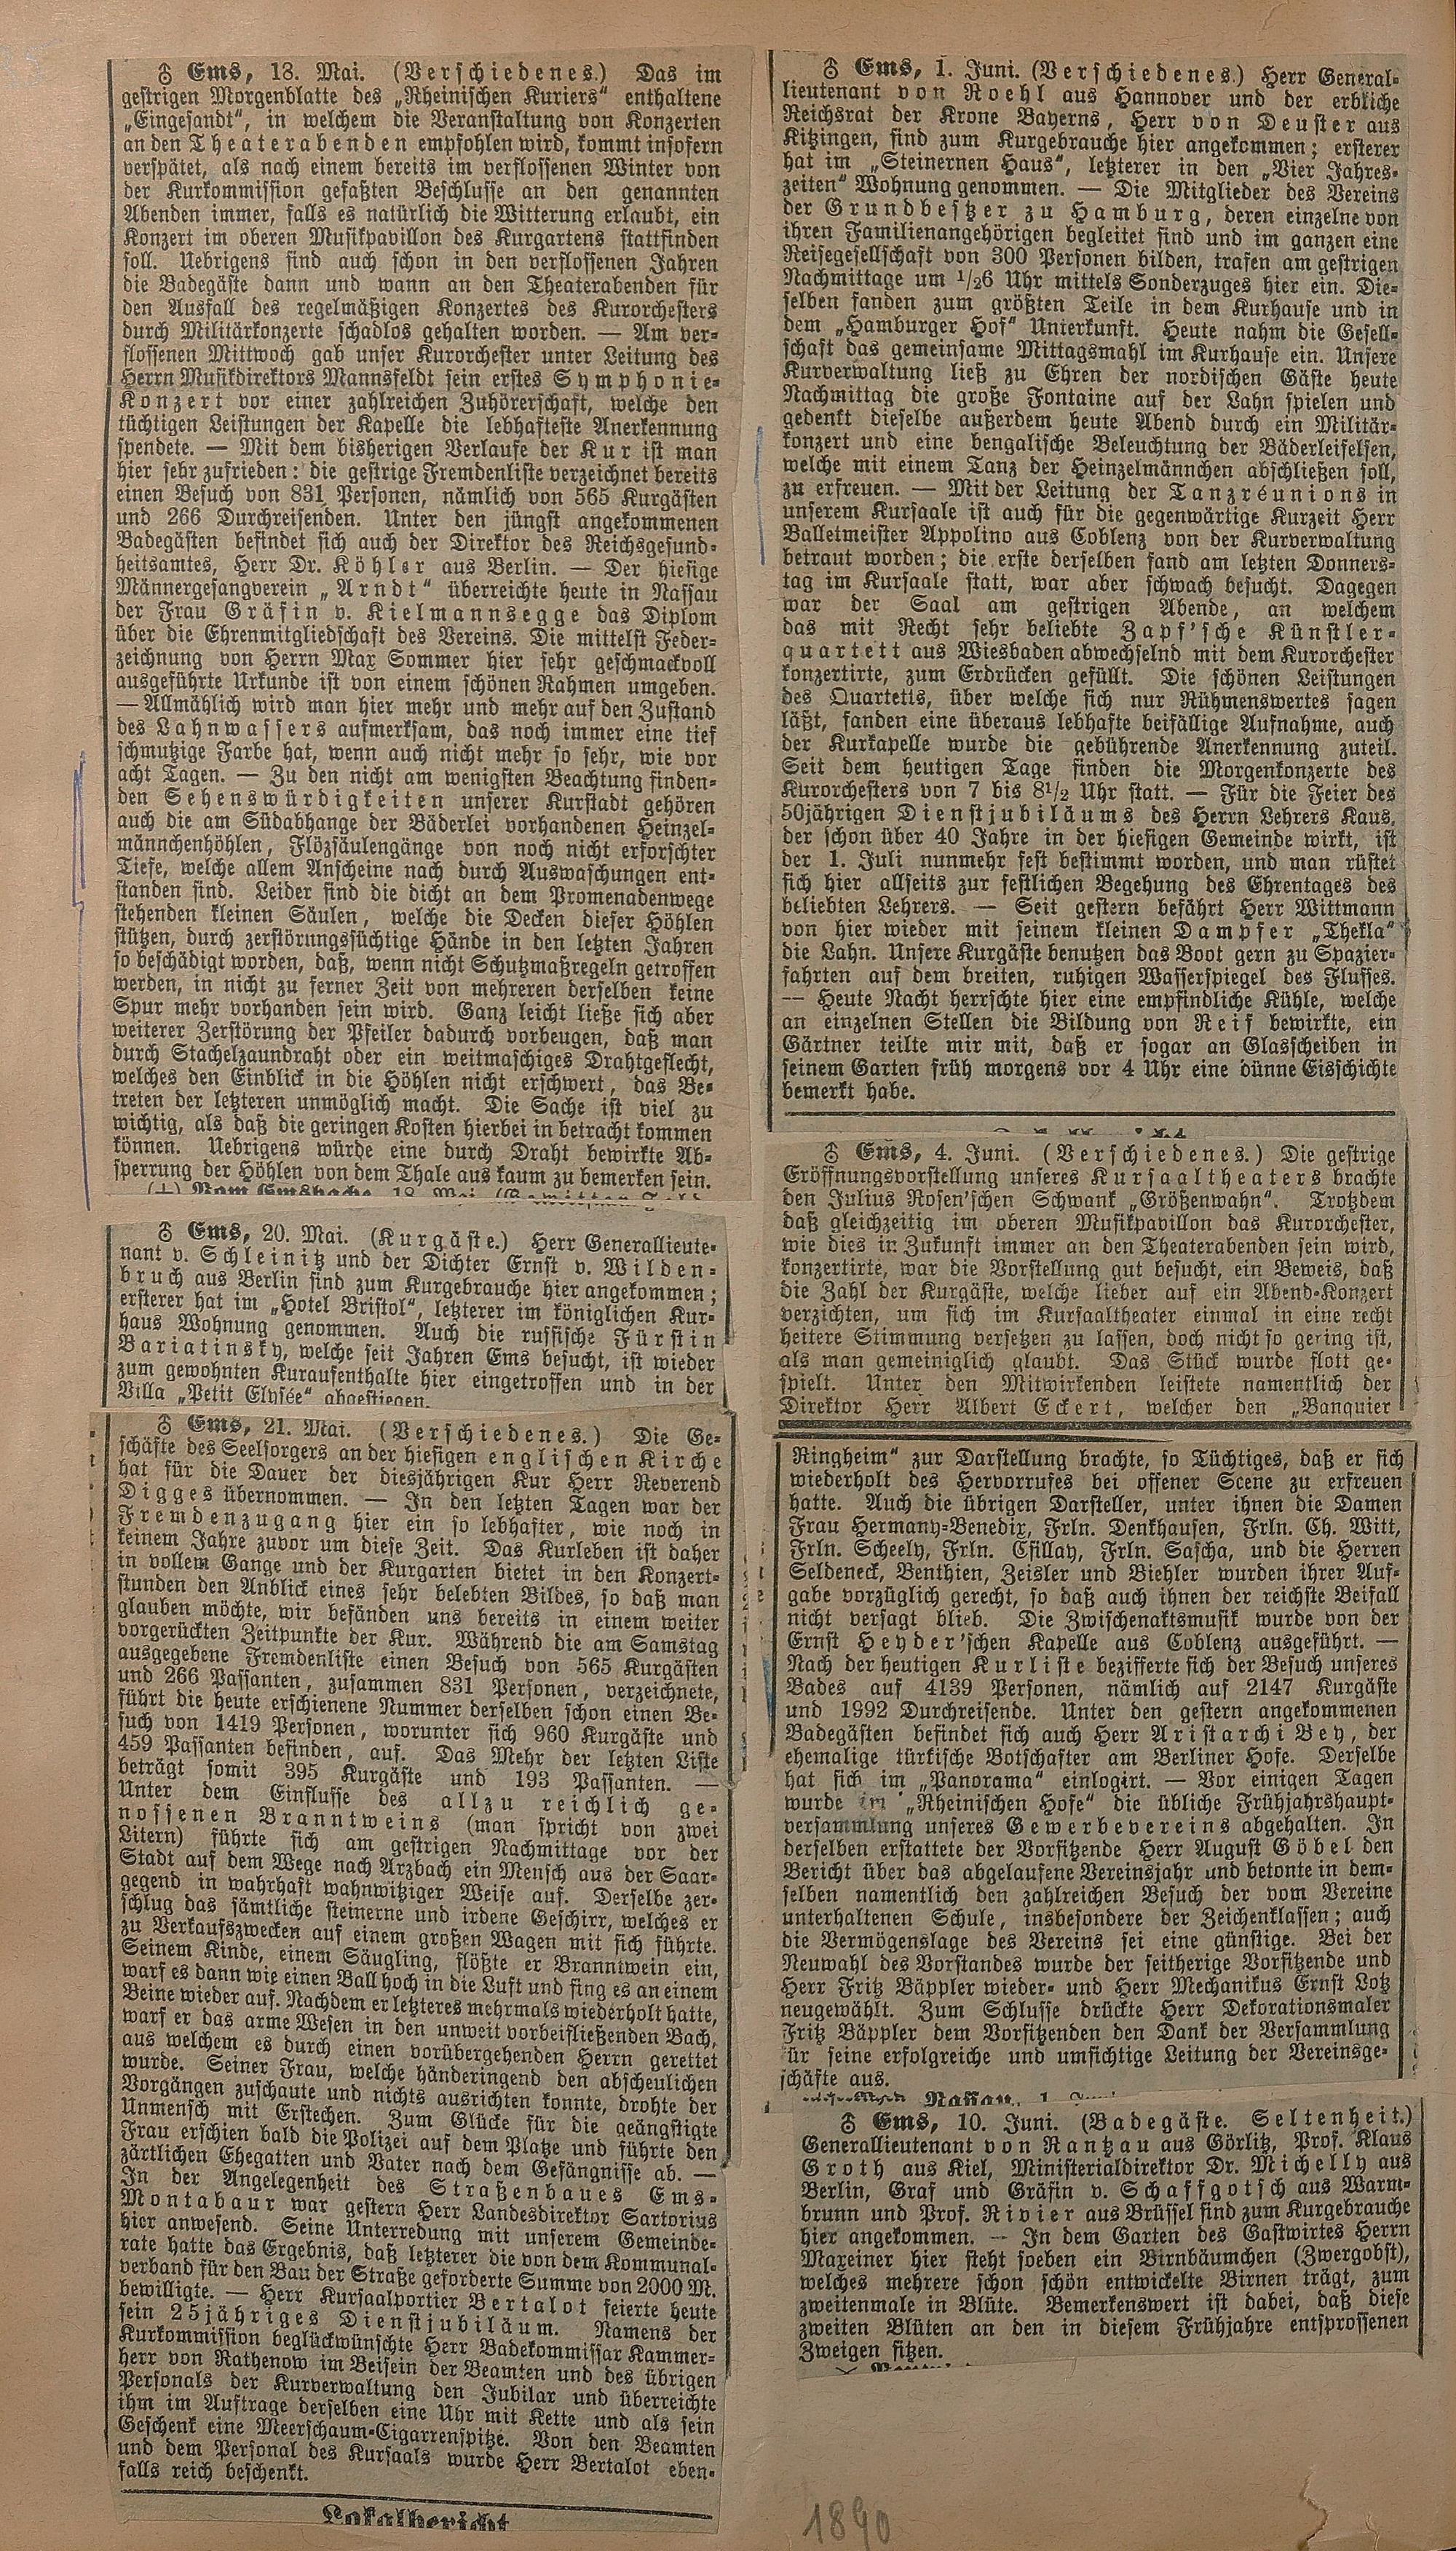 ♁ Ems, 18. Mai. (Verschiedenes.) Das im
gestrigen Morgenblatte des „Rheinischen Kuriers“ enthaltene
„Eingesandt“, in welchem die Veranstaltung von Konzerten
an den Theaterabenden empfohlen wird, kommt insofern
verspätet, als nach einem bereits im verflossenen Winter von
der Kurkommission gefaßten Beschlusse an den genannten
Abenden immer, falls es natürlich die Witterung erlaubt, ein
Konzert im oberen Musikpavillon des Kurgartens stattfinden
soll. Uebrigens sind auch schon in den verflossenen Jahren
die Badegäste dann und wann an den Theaterabenden für
den Ausfall des regelmäßigen Konzertes des Kurorchesters
durch Militärkonzerte schadlos gehalten worden. — Am ver-
flossenen Mittwoch gab unser Kurorchester unter Leitung des
Herrn Musikdirektors Mannsfeldt sein erstes Symphonie-
Konzert vor einer zahlreichen Zuhörerschaft, welche den
tüchtigen Leistungen der Kapelle die lebhafteste Anerkennung
spendete. — Mit dem bisherigen Verlaufe der Kur ist man
hier sehr zufrieden: die gestrige Fremdenliste verzeichnet bereits
einen Besuch von 831 Personen, nämlich von 565 Kurgästen
und 266 Durchreisenden. Unter den jüngst angekommenen
Badegästen befindet sich auch der Direktor des Reichsgesund-
heitsamtes, Herr Dr. Köhler aus Berlin. — Der hiesige
Männergesangverein „Arndt“ überreichte heute in Nassau
der Frau Gräfin v. Kielmannsegge das Diplom
über die Ehrenmitgliedschaft des Vereins. Die mittelst Feder-
zeichnung von Herrn Max Sommer hier sehr geschmackvoll
ausgeführte Urkunde ist von einem schönen Rahmen umgeben.
— Allmählich wird man hier mehr und mehr auf den Zustand
des Lahnwassers aufmerksam, das noch immer eine tief
schmutzige Farbe hat, wenn auch nicht mehr so sehr, wie vor
acht Tagen. — Zu den nicht am wenigsten Beachtung finden-
den Sehenswürdigkeiten unserer Kurstadt gehören
auch die am Südabhange der Bäderlei vorhandenen Heinzel-
männchenhöhlen, Flözsäulengänge von noch nicht erforschter
Tiefe, welche allem Anscheine nach durch Auswaschungen ent-
standen sind. Leider sind die dicht an dem Promenadenwege
stehenden kleinen Säulen, welche die Decken dieser Höhlen
stützen, durch zerstörungssüchtige Hände in den letzten Jahren
so beschädigt worden, daß, wenn nicht Schutzmaßregeln getroffen
werden, in nicht zu ferner Zeit von mehreren derselben keine
Spur mehr vorhanden sein wird. Ganz leicht ließe sich aber
weiterer Zerstörung der Pfeiler dadurch vorbeugen, daß man
durch Stachelzaundraht oder ein weitmaschiges Drahtgeflecht,
welches den Einblick in die Höhlen nicht erschwert, das Be-
treten der letzteren unmöglich macht. Die Sache ist viel zu
wichtig, als daß die geringen Kosten hierbei in betracht kommen
können. Uebrigens würde eine durch Draht bewirkte Ab-
sperrung der Höhlen von dem Thale aus kaum zu bemerken sein.
♁ Ems, 20. Mai. (Kurgäste.) Herr Generallieute-
nant v. Schleinitz und der Dichter Ernst v. Wilden-
bruch aus Berlin sind zum Kurgebrauche hier angekommen;
ersterer hat im „Hotel Bristol“, letzterer im königlichen Kur-
haus Wohnung genommen. Auch die russische Fürstin
Bariatinsky, welche seit Jahren Ems besucht, ist wieder
zum gewohnten Kuraufenthalte hier eingetroffen und in der
Villa „Petit Elysée“ abgestiegen.
♁ Ems, 21. Mai. (Verschiedenes.) Die Ge-
schäfte des Seelsorgers an der hiesigen englischen Kirche
hat für die Dauer der diesjährigen Kur Herr Reverend
Digges übernommen. — In den letzten Tagen war der
Fremdenzugang hier ein so lebhafter, wie noch in
keinem Jahre zuvor um diese Zeit. Das Kurleben ist daher
in vollem Gange und der Kurgarten bietet in den Konzert-
stunden den Anblick eines sehr belebten Bildes, so daß man
glauben möchte, wir befänden uns bereits in einem weiter
vorgerückten Zeitpunkte der Kur. Während die am Samstag
ausgegebene Fremdenliste einen Besuch von 565 Kurgästen
und 266 Passanten, zusammen 831 Personen, verzeichnete,
führt die heute erschienene Nummer derselben schon einen Be-
such von 1419 Personen, worunter sich 960 Kurgäste und
459 Passanten befinden, auf. Das Mehr der letzten Liste
beträgt somit 395 Kurgäste und 193 Passanten. —
Unter dem Einflusse des allzu reichlich ge-
nossenen Branntweins (man spricht von zwei
Litern) führte sich am gestrigen Nachmittage vor der
Stadt auf dem Wege nach Arzbach ein Mensch aus der Saar-
gegend in wahrhaft wahnwitziger Weise auf. Derselbe zer-
schlug das sämtliche steinerne und irdene Geschirr, welches er
zu Verkaufszwecken auf einem großen Wagen mit sich führte.
Seinem Kinde, einem Säugling, flößte er Branntwein ein,
warf es dann wie einen Ball hoch in die Luft und fing es an einem
Beine wieder auf. Nachdem er letzteres mehrmals wiederholt hatte,
warf er das arme Wesen in den unweit vorbeifließenden Bach,
aus welchem es durch einen vorübergehenden Herrn gerettet
wurde. Seiner Frau, welche händeringend den abscheulichen
Vorgängen zuschaute und nichts ausrichten konnte, drohte der
Unmensch mit Erstechen. Zum Glücke für die geängstigte
Frau erschien bald die Polizei auf dem Platze und führte den
zärtlichen Ehegatten und Vater nach dem Gefängnisse ab. —
In der Angelegenheit des Straßenbaues Ems-
Montabaur war gestern Herr Landesdirektor Sartorius
hier anwesend. Seine Unterredung mit unserem Gemeinde-
rate hatte das Ergebnis, daß letzterer die von dem Kommunal-
verband für den Bau der Straße geforderte Summe von 2000 M.
bewilligte. — Herr Kursaalportier Bertalot feierte heute
sein 25jähriges Dienstjubiläum. Namens der
Kurkommission beglückwünschte Herr Badekommissar Kammer-
herr von Rathenow im Beisein der Beamten und des übrigen
Personals der Kurverwaltung den Jubilar und überreichte
ihm im Auftrage derselben eine Uhr mit Kette und als sein
Geschenk eine Meerschaum-Cigarrenspitze. Von den Beamten
und dem Personal des Kursaals wurde Herr Bertalot eben-
falls reich beschenkt.
Lokalbericht
♁ Ems, 1. Juni. (Verschiedenes.) Herr General-
lieutenant von Roehl aus Hannover und der erbliche
Reichsrat der Krone Bayerns, Herr von Deuster aus
Kitzingen, sind zum Kurgebrauche hier angekommen; ersterer
hat im „Steinernen Haus“, letzterer in den „Vier Jahres-
zeiten“ Wohnung genommen. — Die Mitglieder des Vereins
der Grundbesitzer zu Hamburg, deren einzelne von
ihren Familienangehörigen begleitet sind und im ganzen eine
Reisegesellschaft von 300 Personen bilden, trafen am gestrigen
Nachmittage um 1/26 Uhr mittels Sonderzuges hier ein. Die-
selben fanden zum größten Teile in dem Kurhause und in
dem „Hamburger Hof“ Unterkunft. Heute nahm die Gesell-
schaft das gemeinsame Mittagsmahl im Kurhause ein. Unsere
Kurverwaltung ließ zu Ehren der nordischen Gäste heute
Nachmittag die große Fontaine auf der Lahn spielen und
gedenkt dieselbe außerdem heute Abend durch ein Militär-
konzert und eine bengalische Beleuchtung der Bäderleifelsen,
welche mit einem Tanz der Heinzelmännchen abschließen soll,
zu erfreuen. — Mit der Leitung der Tanzréunions in
unserem Kursaale ist auch für die gegenwärtige Kurzeit Herr
Balletmeister Appolino aus Coblenz von der Kurverwaltung
betraut worden; die erste derselben fand am letzten Donners-
tag im Kursaale statt, war aber schwach besucht. Dagegen
war der Saal am gestrigen Abende, an welchem
das mit Recht sehr beliebte Zapf'sche Künstler-
quartett aus Wiesbaden abwechselnd mit dem Kurorchester
konzertirte, zum Erdrücken gefüllt. Die schönen Leistungen
des Quartetts, über welche sich nur Rühmenswertes sagen
läßt, fanden eine überaus lebhafte beifällige Aufnahme, auch
der Kurkapelle wurde die gebührende Anerkennung zuteil.
Seit dem heutigen Tage finden die Morgenkonzerte des
Kurorchesters von 7 bis 8 1/2 Uhr statt. — Für die Feier des
50jährigen Dienstjubiläums des Herrn Lehrers Kaus,
der schon über 40 Jahre in der hiesigen Gemeinde wirkt, ist
der 1. Juli nunmehr fest bestimmt worden, und man rüstet
sich hier allseits zur festlichen Begehung des Ehrentages des
beliebten Lehrers. — Seit gestern befährt Herr Wittmann
von hier wieder mit seinem kleinen Dampfer „Thekla“
die Lahn. Unsere Kurgäste benutzen das Boot gern zu Spazier-
fahrten auf dem breiten, ruhigen Wasserspiegel des Flusses.
— Heute Nacht herrschte hier eine empfindliche Kühle, welche
an einzelnen Stellen die Bildung von Reif bewirkte, ein
Gärtner teilte mir mit, daß er sogar an Glasscheiben in
seinem Garten früh morgens vor 4 Uhr eine dünne Eisschichte
bemerkt habe.
♁ Ems, 4. Juni. (Verschiedenes.) Die gestrige
Eröffnungsvorstellung unseres Kursaaltheaters brachte
den Julius Rosen'schen Schwank „Größenwahn“. Trotzdem
daß gleichzeitig im oberen Musikpavillon das Kurorchester,
wie dies in Zukunft immer an den Theaterabenden sein wird,
konzertirte, war die Vorstellung gut besucht, ein Beweis, daß
die Zahl der Kurgäste, welche lieber auf ein Abend-Konzert
verzichten, um sich im Kursaaltheater einmal in eine recht
heitere Stimmung versetzen zu lassen, doch nicht so gering ist,
als man gemeiniglich glaubt. Das Stück wurde flott ge-
spielt. Unter den Mitwirkenden leistete namentlich der
Direktor Herr Albert Eckert, welcher den „Banquier
Ringheim“ zur Darstellung brachte, so Tüchtiges, daß er sich
wiederholt des Hervorrufes bei offener Scene zu erfreuen
hatte. Auch die übrigen Darsteller, unter ihnen die Damen
Frau Hermany-Benedix, Frln. Denkhausen, Frln. Ch. Witt,
Frln. Scheely, Frln. Csillay, Frln. Sascha, und die Herren
Seldeneck, Benthien, Zeisler und Biehler wurden ihrer Auf-
gabe vorzüglich gerecht, so daß auch ihnen der reichste Beifall
nicht versagt blieb. Die Zwischenaktsmusik wurde von der
Ernst Heyder'schen Kapelle aus Coblenz ausgeführt. —
Nach der heutigen Kurliste bezifferte sich der Besuch unseres
Bades auf 4139 Personen, nämlich auf 2147 Kurgäste
und 1992 Durchreisende. Unter den gestern angekommenen
Badegästen befindet sich auch Herr Aristarchi Bey, der
ehemalige türkische Botschafter am Berliner Hofe. Derselbe
hat sich im „Panorama“ einlogirt. — Vor einigen Tagen
wurde im „Rheinischen Hofe“ die übliche Frühjahrshaupt-
versammlung unseres Gewerbevereins abgehalten. In
derselben erstattete der Vorsitzende Herr August Göbel den
Bericht über das abgelaufene Vereinsjahr und betonte in dem-
selben namentlich den zahlreichen Besuch der vom Vereine
unterhaltenen Schule, insbesondere der Zeichenklassen; auch
die Vermögenslage des Vereins sei eine günstige. Bei der
Neuwahl des Vorstandes wurde der seitherige Vorsitzende und
Herr Fritz Bäppler wieder- und Herr Mechanikus Ernst Lotz
neugewählt. Zum Schlusse drückte Herr Dekorationsmaler
Fritz Bäppler dem Vorsitzenden den Dank der Versammlung
für seine erfolgreiche und umsichtige Leitung der Vereinsge-
schäfte aus.
♁ Ems, 10. Juni. (Badegäste. Seltenheit.)
Generallieutenant von Rantzau aus Görlitz, Prof. Klaus
Groth aus Kiel, Ministerialdirektor Dr. Michelly aus
Berlin, Graf und Gräfin v. Schaffgotsch aus Warm-
brunn und Prof. Rivier aus Brüssel sind zum Kurgebrauche
hier angekommen. — In dem Garten des Gastwirtes Herrn
Maxeiner hier steht soeben ein Birnbäumchen (Zwergobst),
welches mehrere schon schön entwickelte Birnen trägt, zum
zweitenmale in Blüte. Bemerkenswert ist dabei, daß diese
zweiten Blüten an den in diesem Frühjahre entsprossenen
Zweigen sitzen.
1890